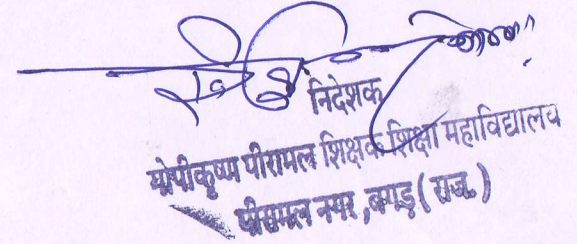 निदेशक
गोपीकृष्ण पीरामल शिक्षक शिक्षा महाविद्यालय
पीरामल नगर, बगड़ (राज.)